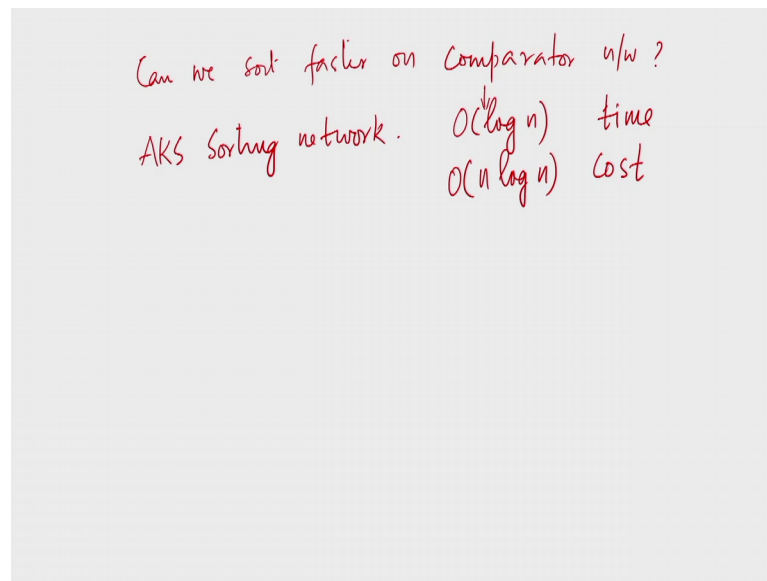 Can we sort faster on Comparator n/w ?
AKS Sorting network. O(log n) time
O(n log n) cost